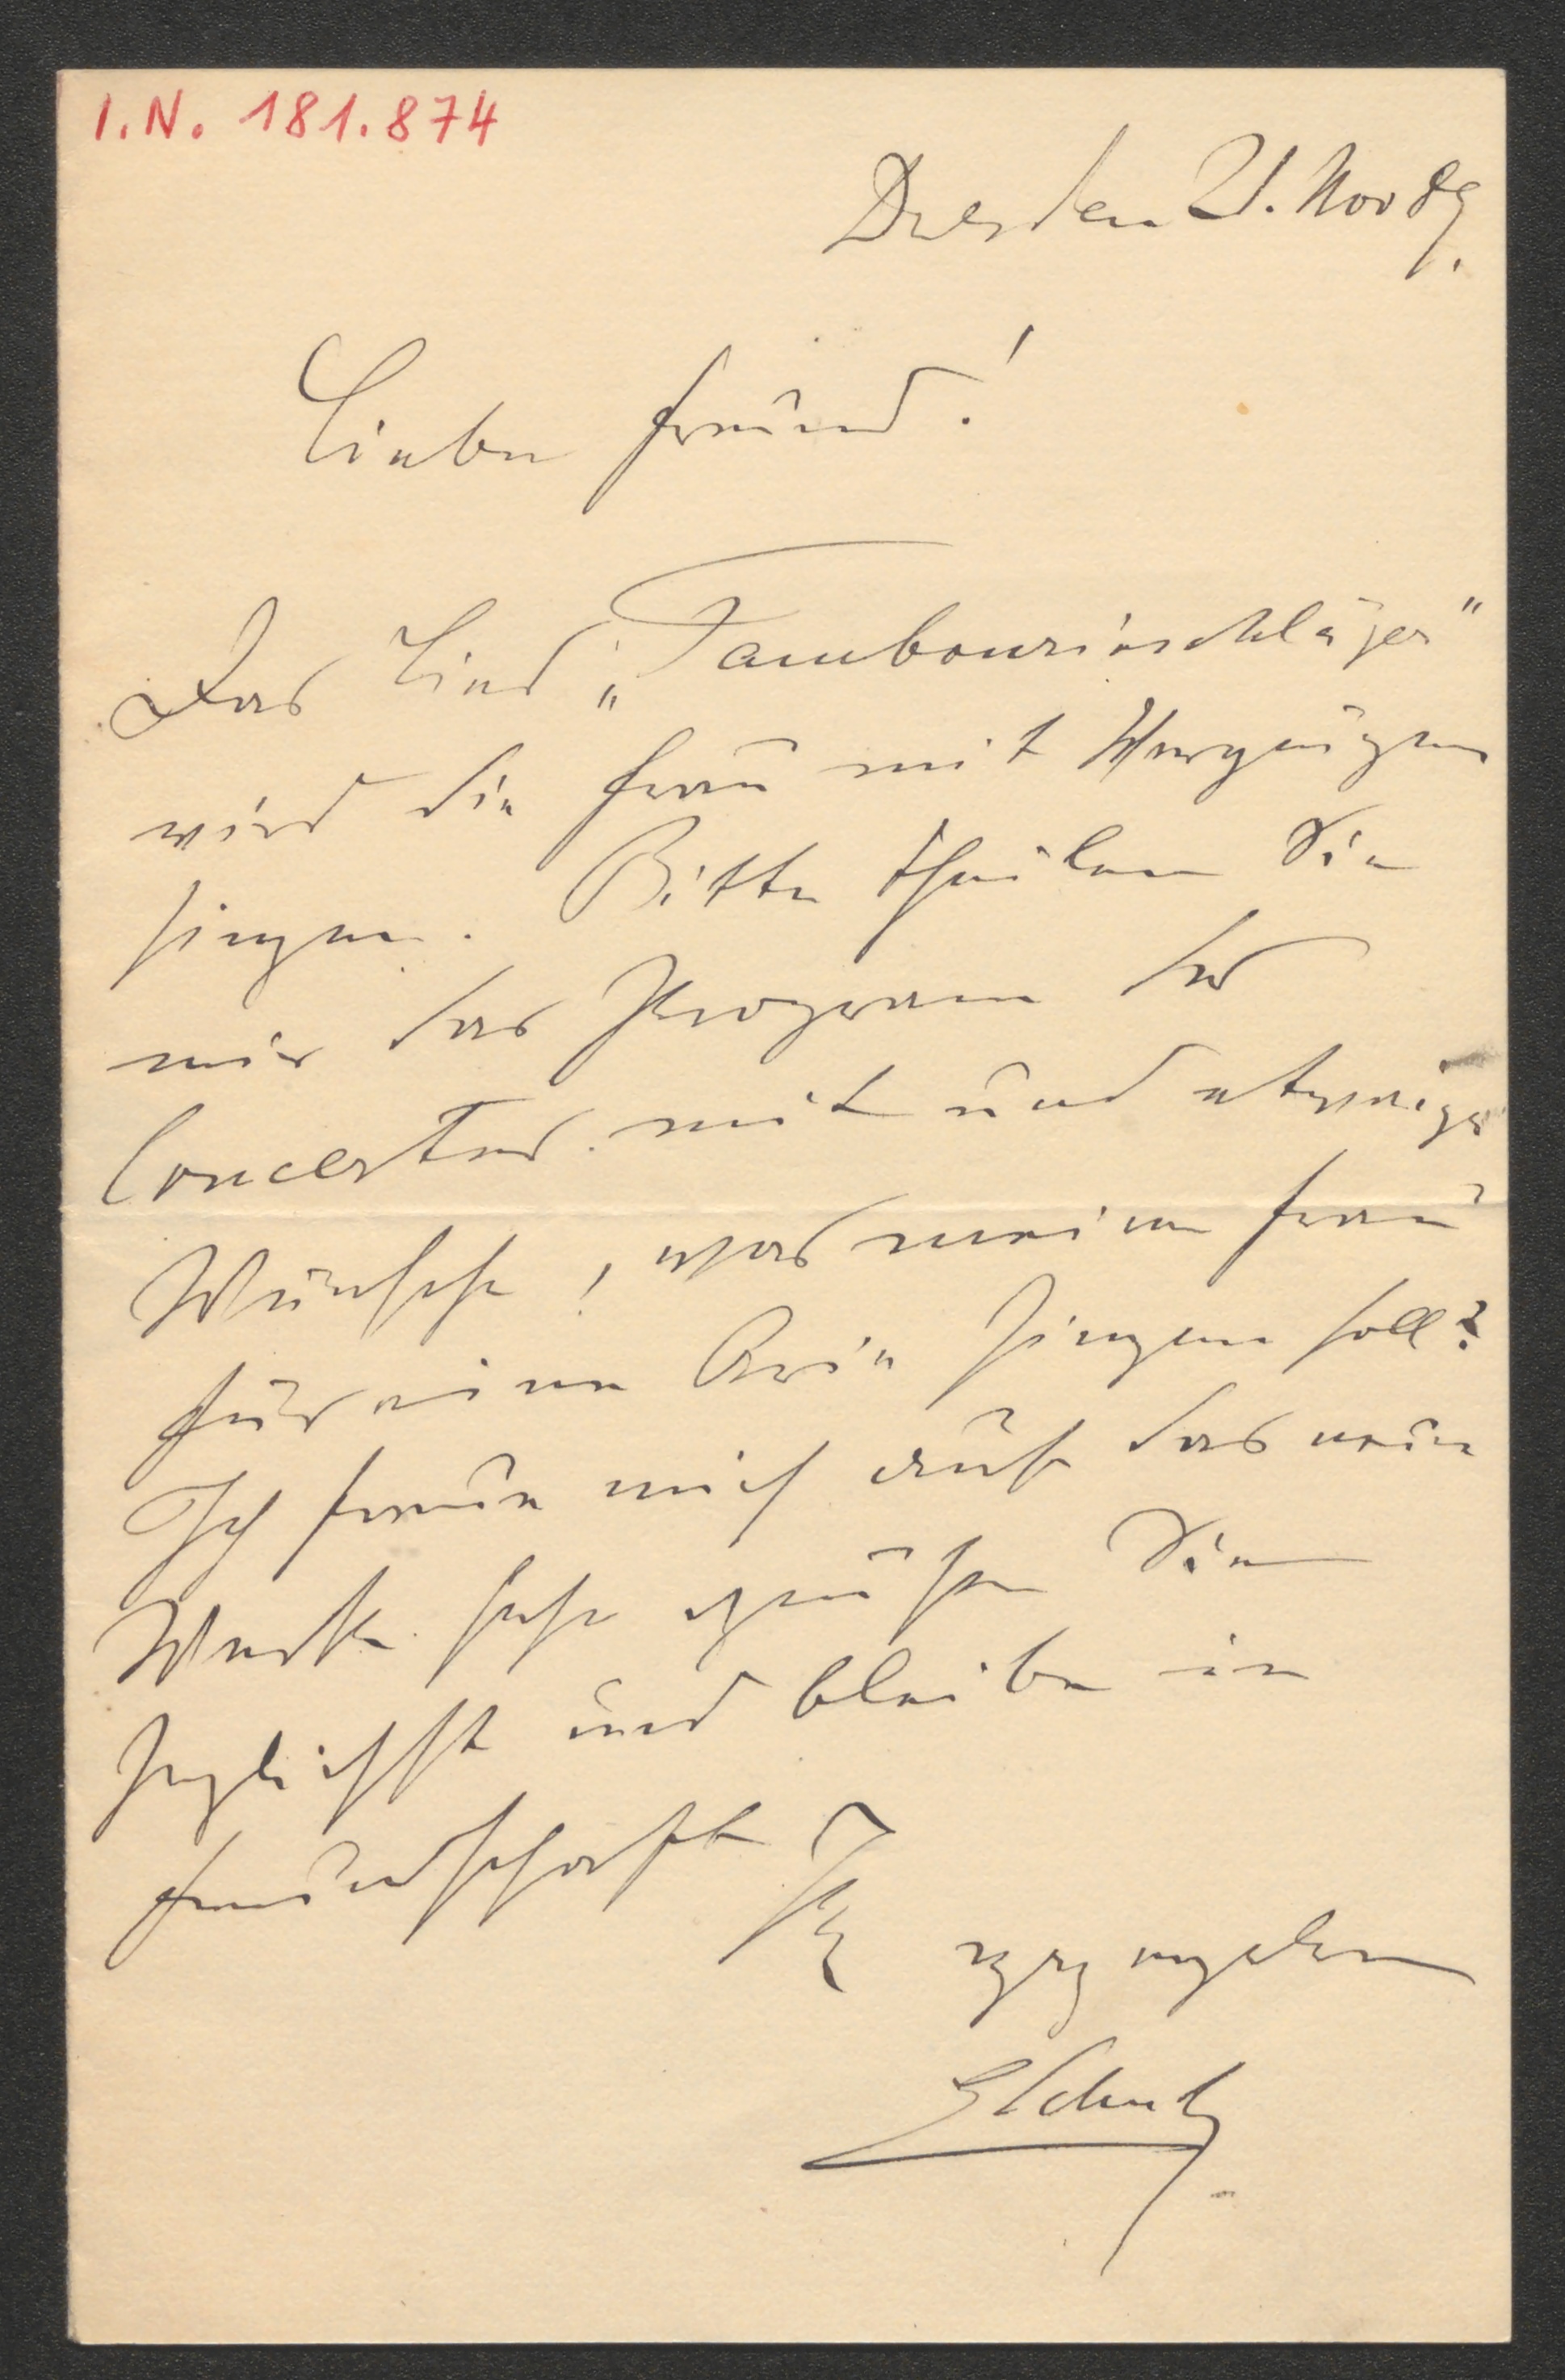 I.N. 181.874
Dresden 21. Nov 89.
Lieber Freund!
Das Lied „Tambourinschläger"
wird die Frau mit Vergnügen
singen. Bitte theilen Sie
mir das Program des
Concertes mit und etwaige
Wünsche, was meine Frau
für eine Arie singen soll?
Ich freue mich auf das neue
Werk sehr grüße Sie
herzlichst und bleibe in
Freundschaft Ihr
ergebener